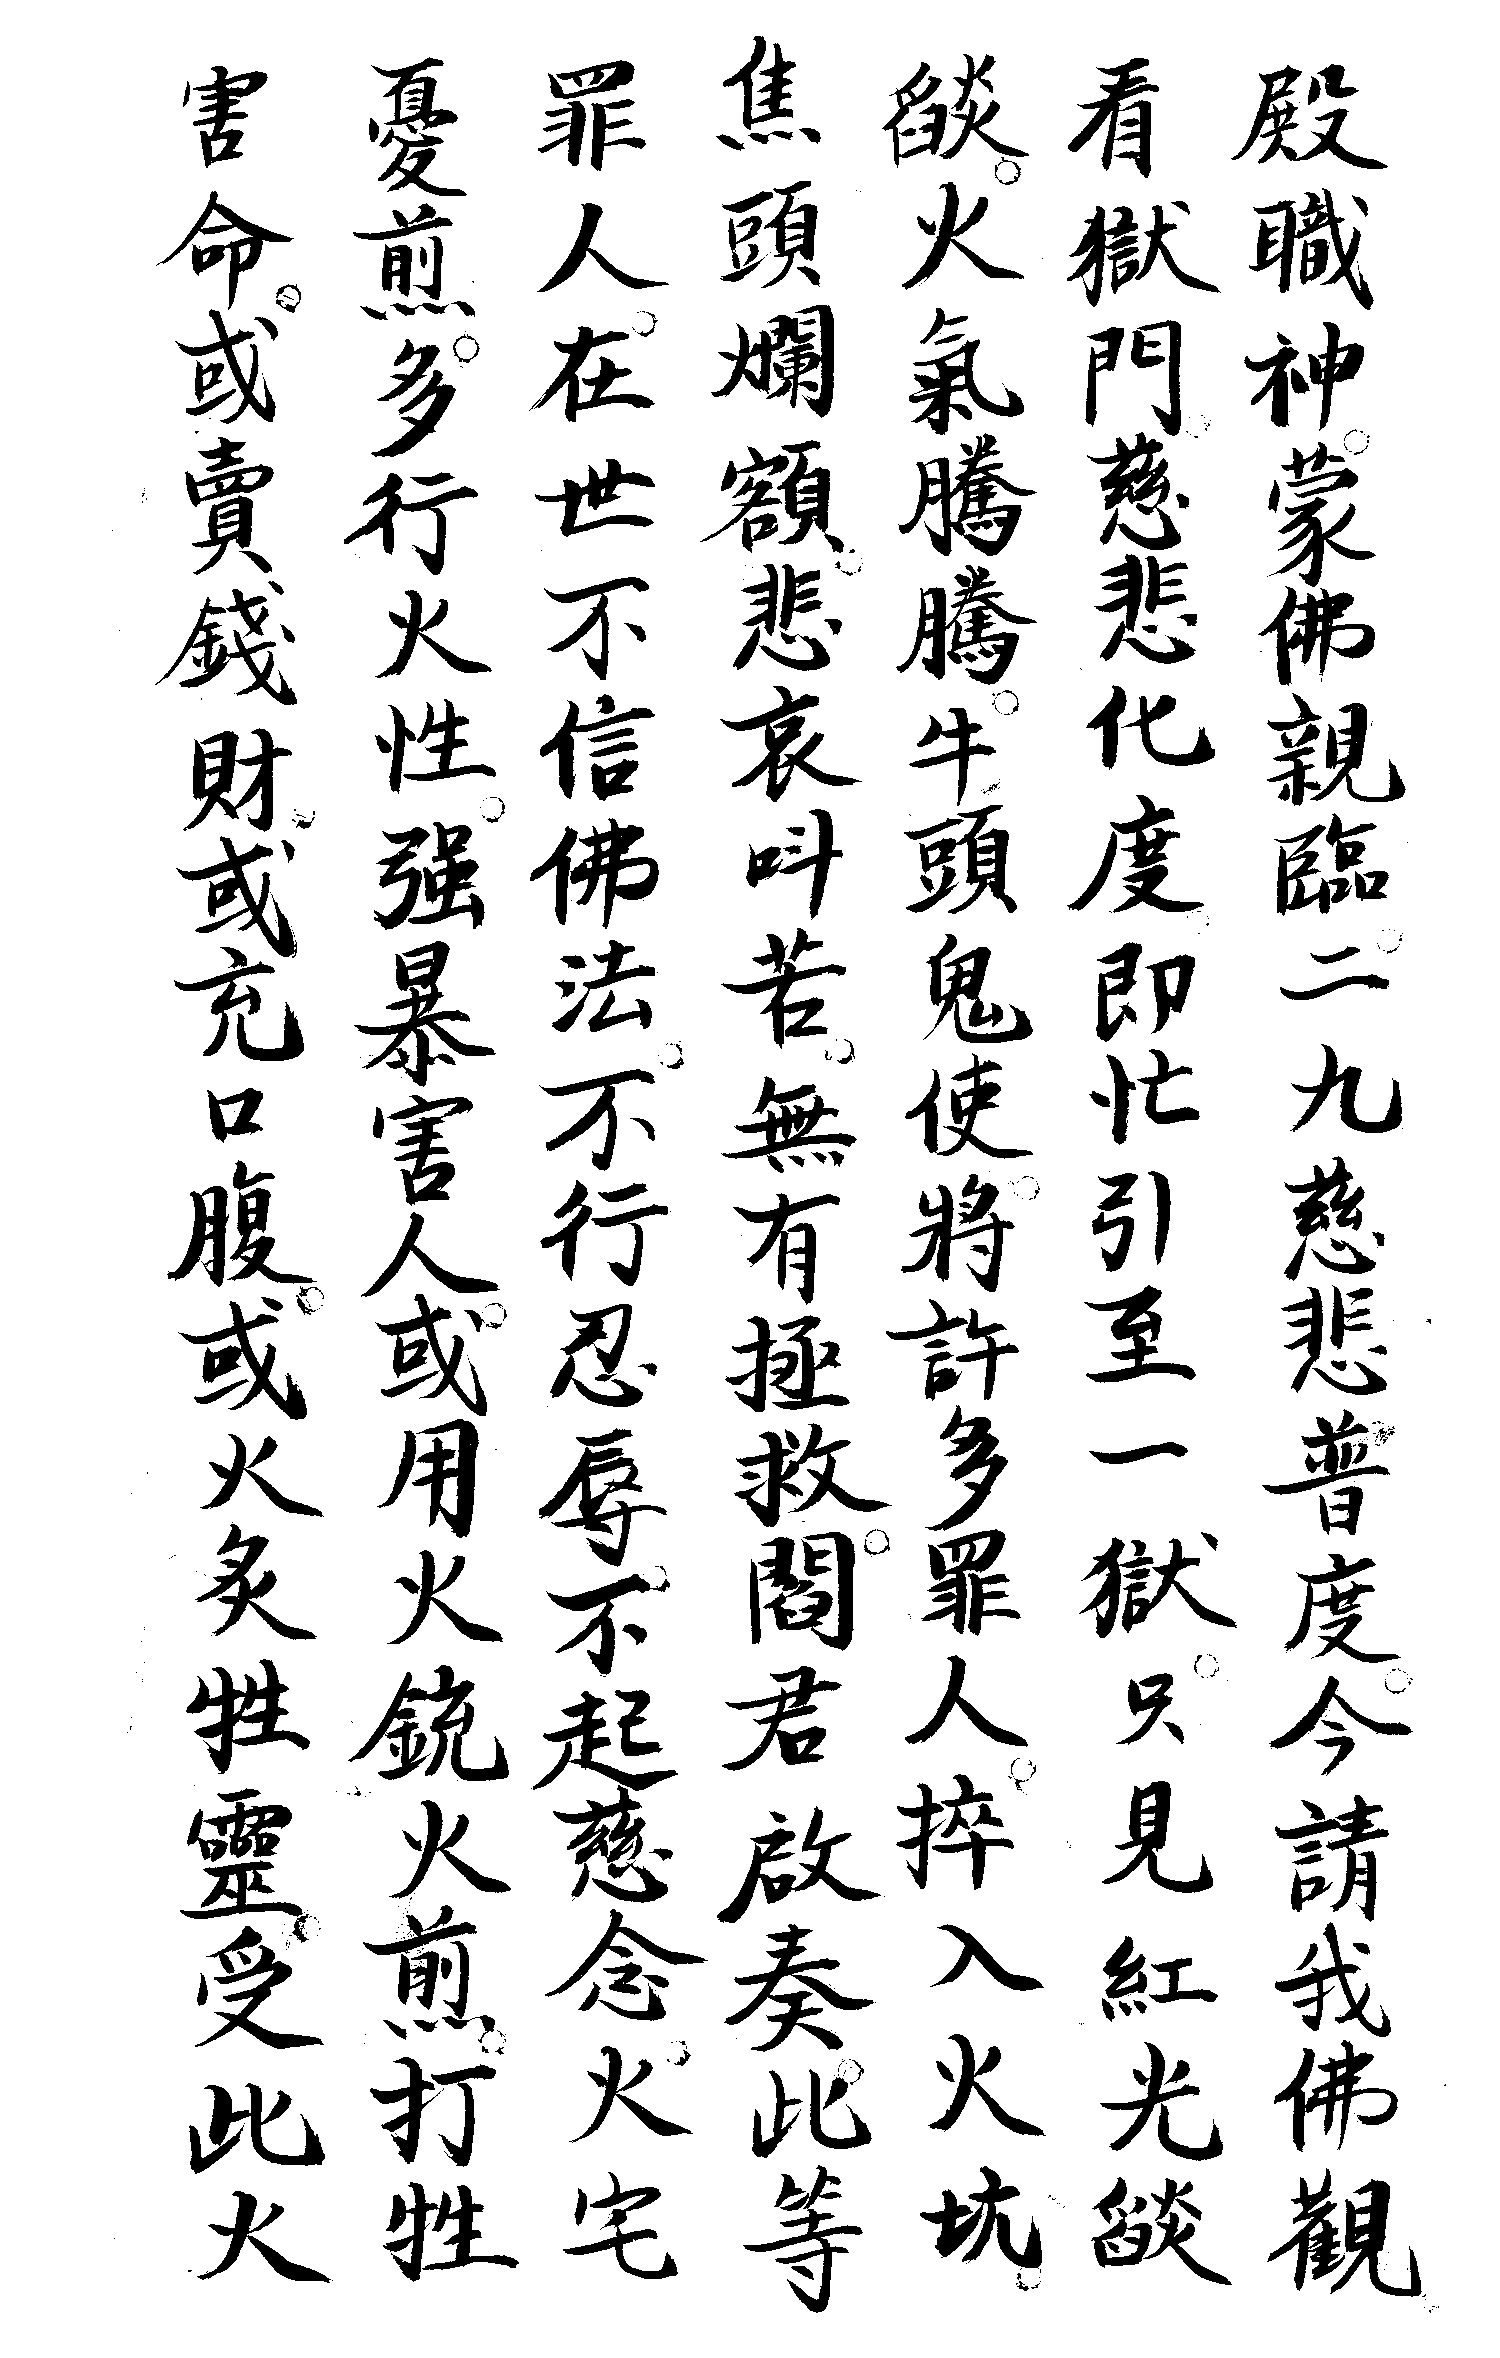 殿職神。蒙佛親臨。二九慈悲普度。今請我佛觀
看獄門。慈悲化度。即忙引至一獄。只見紅光燄
燄。火氣騰騰。牛頭鬼使。將許多罪人。捽入火坑。
焦頭爛額。悲哀叫苦。無有拯救。閻君啟奏。此等
罪人。在世不信佛法。不行忍辱。不起慈念。火宅
憂煎。多行火性。强暴害人。或用火銃火煎。打牲
害命。或賣錢財。或充口腹。或火炙牲靈。受此火